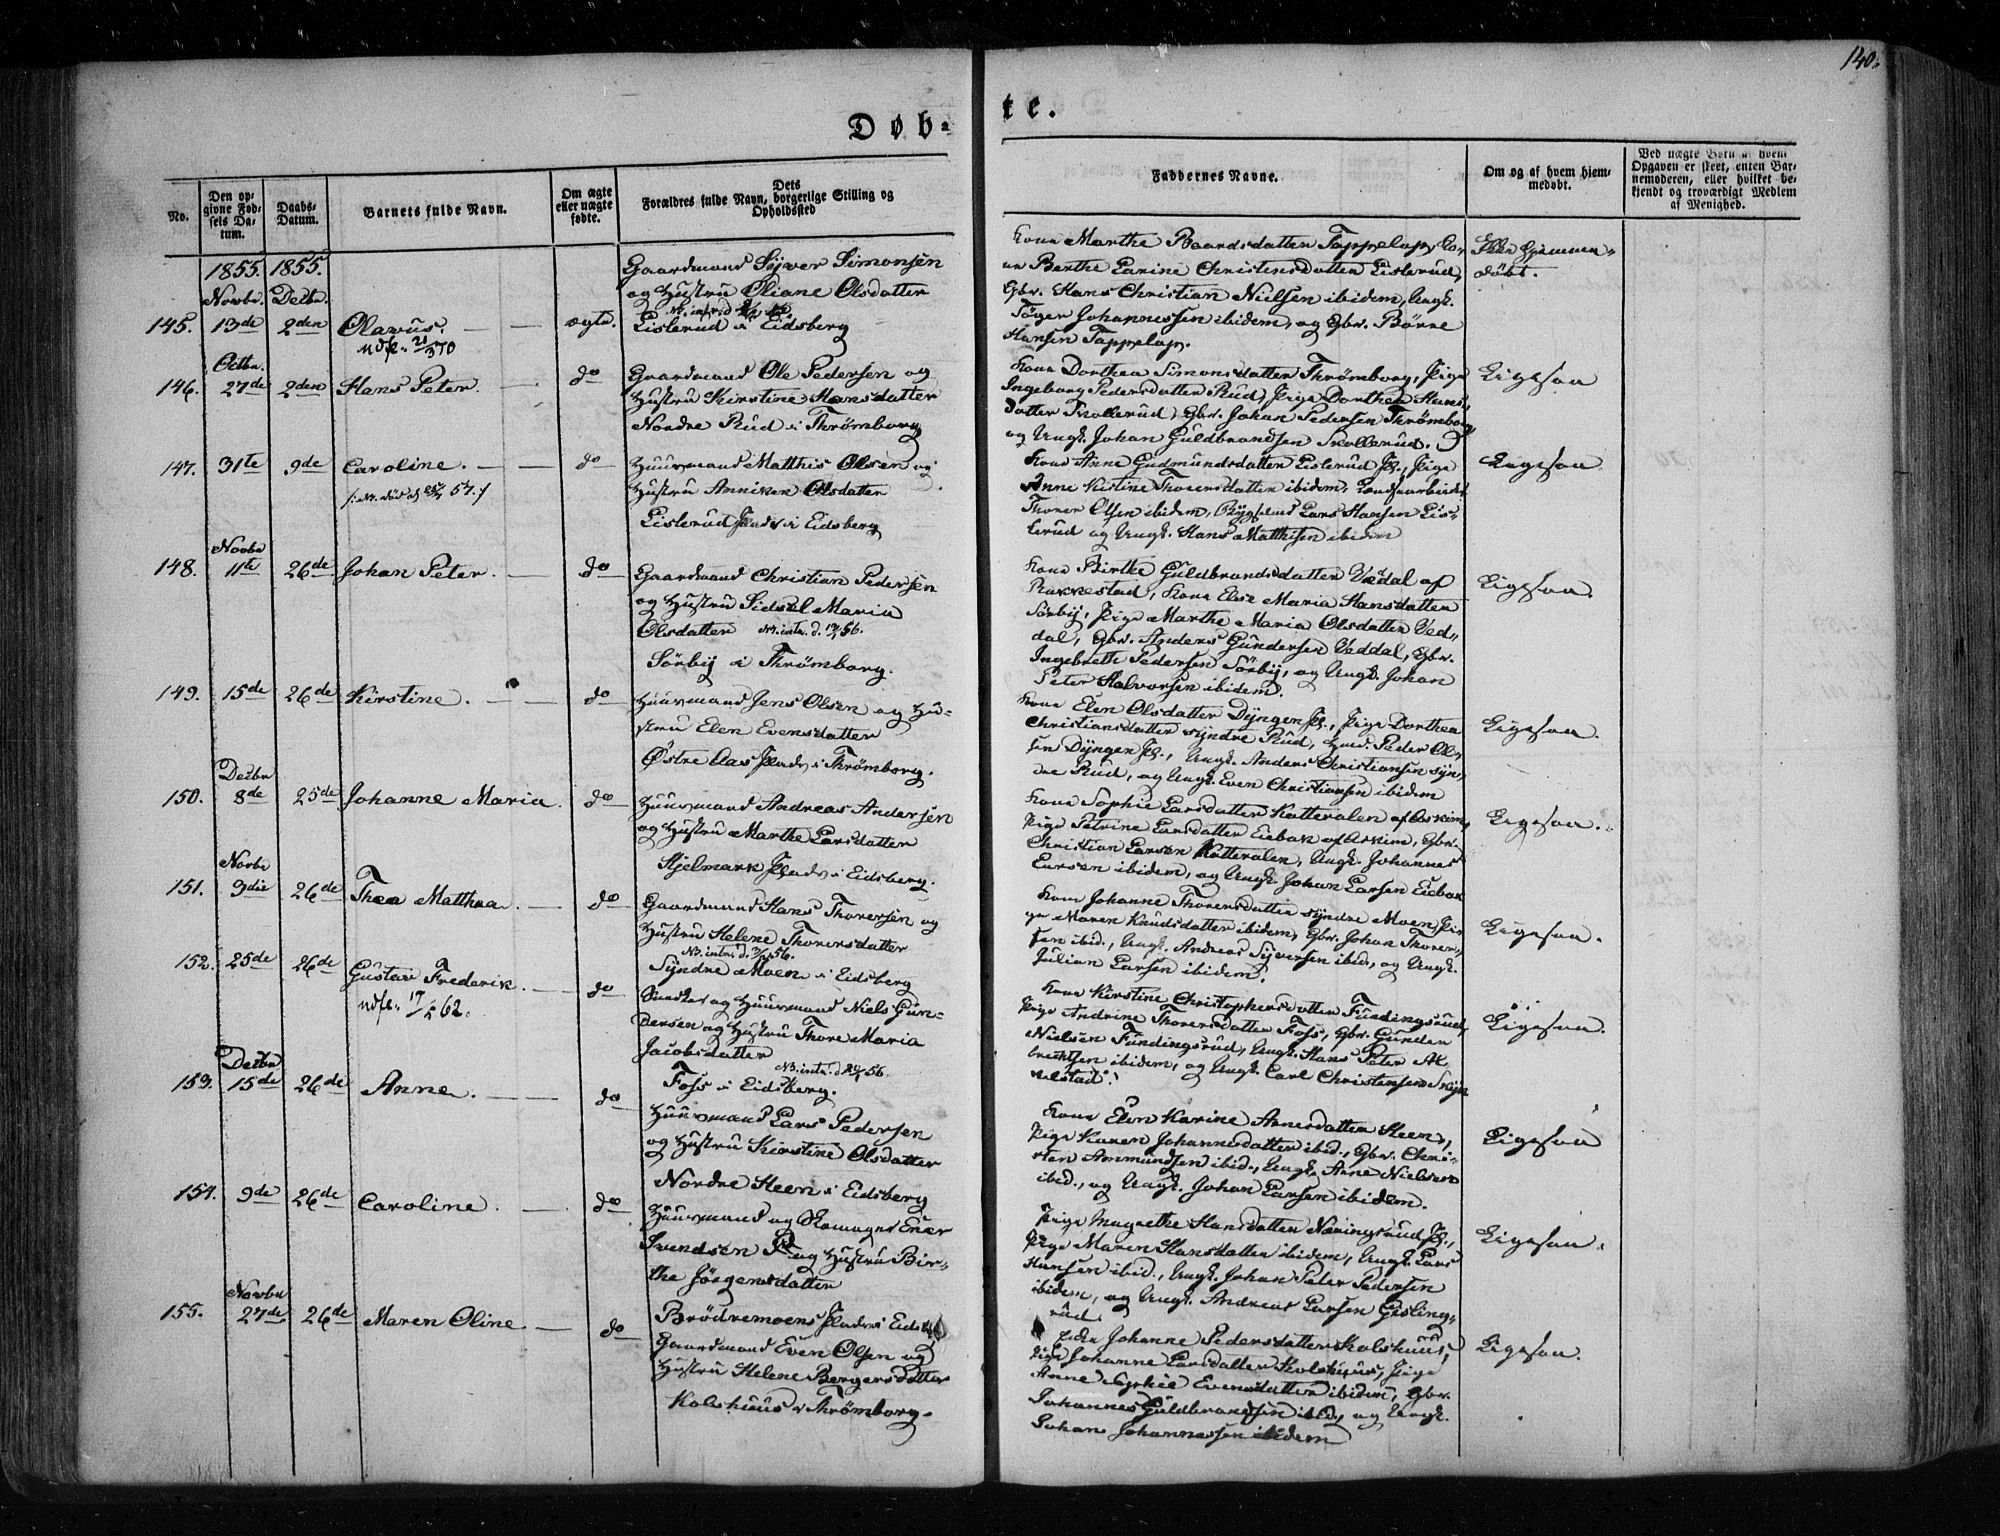 140.
Døb-
te.
No.
Den op-
givne Fød-
sels Da-
tum.
Daabs-
Datum.
Barnets fulde Navn.
Om ægte
eller uægte
fødte.
Dets
Forældres fulde Navn, borgerlige Stilling og
Opholdssted
Faddernes Navne.
Om og af hvem hjem-
medøbt.
Ved uægte Børn af hvem
Opgaven er skeet, enten Bar-
nemoderen, eller hvilket be-
kjendt og troværdigt Medlem
af Menighed.
1855. 1855.
Novbr. Decbr.
145. 13de 2den Olavus. ægte.
Gaardmand Syver Simonsen
og Hustru Oliane Olsdatter
Lislerud i Eidsberg
Kone Marthe Baardsdatter Tappelap, Ko-
ne Berthe Larine Christensdatter Lislerud,
Gbr. Hans Christian Nielsen ibidem, Ungk.
Töger Johannessen ibidem, og Gbr. Børre
Hansen Tappelap.
Ikke hjemme-
døbt.
Octbr.
146. 27de 2den Hans Peter. do
Gaardmand Ole Pedersen og
Hustru Kirstine Hansdatter
Nordre Rud i Thrømborg
Kone Dorthea Simonsdatter Thrømborg, Pige
Ingeborg Pedersdatter Rud, Pige Dorthea Hans-
datter Trollerud, Gbr. Johan Pedersen Thrømborg
og Ungk. Johan Guldbrandsen Trollerud.
Ligesaa
147. 31te 9de Caroline. do
Huusmand Matthis Olsen og
Hustru Anniken Olsdatter
Lislerud Plads i Eidsberg
Kone Anne Gudmundsdatter Lislerud Pl., Pige
Anne Kirstine Thorersdatter ibidem,
Thorer Olsen ibidem, Lars Hansen Lis-
lerud og Ungk. Hans Matthisen ibidem
Ligesaa.
Novbr
148. 11te 26de Johan Peter. do
Gaardmand Christian Pedersen
og Hustru Sidsel Maria
Olsdatter NB. intr. d. 13/1 56.
Sörby i Thrømborg.
Kone Birthe Guldbrandsdatter Vedal af
Rakkestad, Kone Else Maria Hansdatter
Sörby, Pige Marthe Maria Olsdatter Ved-
dal, Gbr. Anders Gundersen Veddal, Gbr.
Ingebreth Pedersen Sörby, og Ungk. Johan
Peter Halvorsen ibidem.
Ligesaa.
149. 15de 26de Kirstine. do
Huusmand Jens Olsen og Hu-
stru Elen Evensdatter
Østre Aas Plads i Thrømborg.
Kone Elen Olsdatter Dyngen Pl., Pige Dorthea
Christiansdatter Syndre Rud, Huusm. Peder Ol-
sen Dyngen Pl., Ungk. Anders Christiansen Syn-
dre Rud, og Ungk. Even Christiansen ibidem
Ligesaa.
Decbr
150. 8de 25de Johanne Maria. do
Huusmand Andreas Andersen
og Hustru Marthe Larsdatter
Hjelmark Plads i Eidsberg.
Kone Sophie Larsdatter Katteralen af Askim,
Pige Petrine Larsdatter Eiebak af Askim, Gbr.
Christian Larsen Katteralen, Ungk. Johannes
Larsen ibidem, og Ungk. Johan Larsen Eiebak
Ligesaa.
Novbr
151. 9die 26de Thea Matthea. do
Gaardmand Hans Thorersen og
Hustru Helene Thorersdatter
Syndre Moen i Eidsberg
Kone Johanne Thorersdatter Syndre Moen, Pi-
ge Maren Knudsdatter ibidem, Gbr. Johan Thorer-
sen ibid., Ungk. Andreas Syversen ibid., og Ungk.
Julian Larsen ibidem.
Ligesaa.
152. 25de 26de Gustav Frederik. do
Smed og Huusmand Niels Gun-
dersen og Hustru Thore Maria
Jacobsdatter
Foss i Eidsberg.
Kone Kirstine Christophersdatter Fundingsrud,
Pige Andrine Thorersdatter Foss, Gbr. Gunder
Nielsen Fundingsrud, Ungk. Hans Peter
ibidem, og Ungk. Carl Christensen
Ligesaa.
Decbr
153. 15de 26de Anne. do
Huusmand Lars Pedersen
og Hustru Kirstine Olsdatter
Nordre Heen i Eidsberg
Kone Elen Karine Arnesdatter Heen,
Pige Karen Johannesdatter ibid., Gbr. Chri-
sten Ammundsen ibid., Ungk. Arne Nielsen
ibid., og Ungk. Johan Larsen ibidem.
Ligesaa
154. 9de 26de Caroline. do
Huusmand og Skomager Ener
Svendsen og Hustru Bir-
the Jörgensdatter
Brödremoens Plads i Eidsb.
Pige Magrethe Hansdatter Næringsrud Pl.,
Pige Maren Hansdatter ibidem, Ungk. Lars
Hansen ibid., Ungk. Johan Peter Pedersen
ibidem, og Ungk. Andreas Larsen Gisling-
rud
Ligesaa.
Novbr
155. 27de 26de Maren Oline. do
Gaardmand Even Olsen og
Hustru Helene Bergersdatter
Kolshuus i Thrømborg.
Johanne Pedersdatter Kolshuus,
Pige Johanne Larsdatter Kolshuus, Pige
Anne Sophie Evensdatter ibidem, Gbr.
Johannes Guldbrandsen ibid., og Ungk.
Johan Johannessen ibidem
Ligesaa.